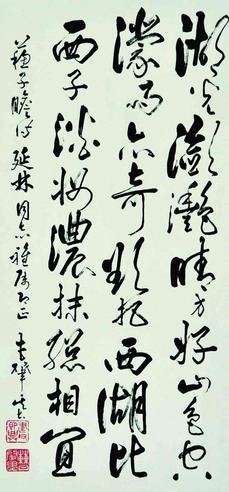 湖光瀲灧晴方好山色空
濛雨亦奇欲把西湖比
西子淡妆濃抹總相宜
蘇子瞻詩 延林同志雅屬即正